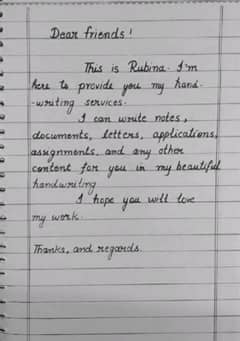 Dear friends!
This is Rubina. I'm
here to provide you my hand-
-writing services.
I can write notes,
documents, letters, applications,
assignments, and any other
content for you in my beautiful
handwriting
I hope you will love
my work.
Thanks, and regards.